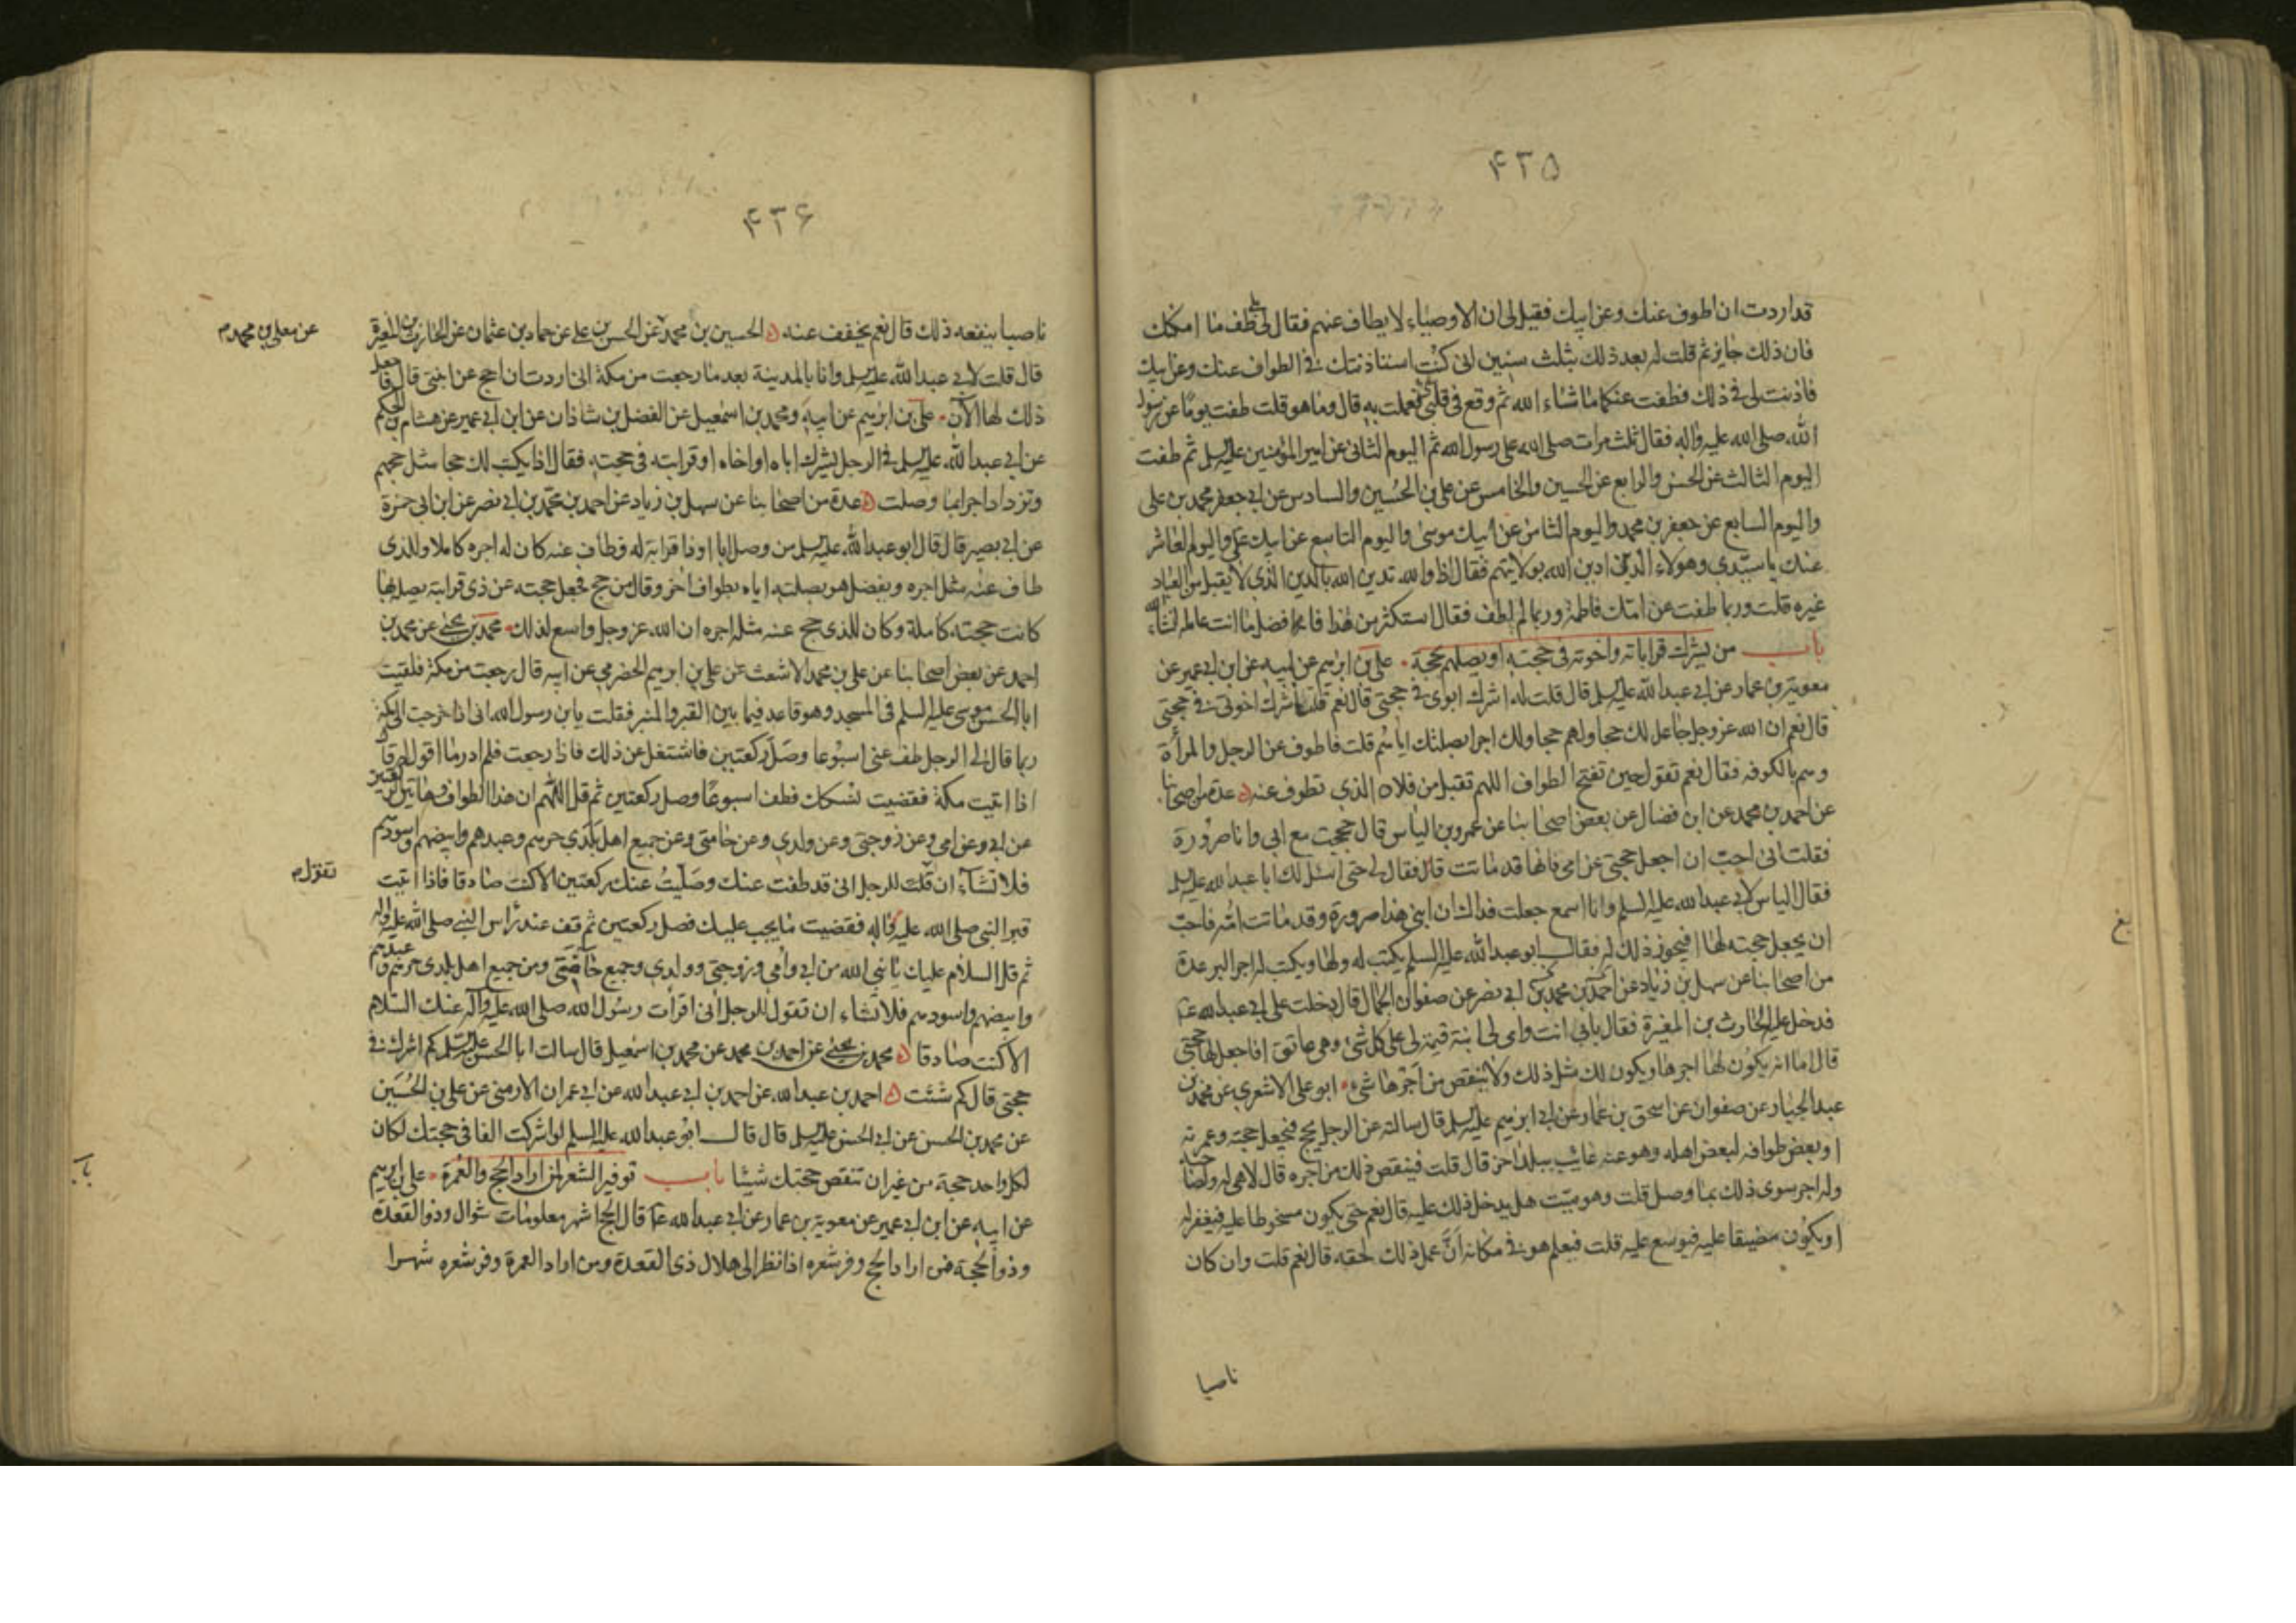 ۴۳۵
قد اردت ان اطوف عنك وعن ابيك فقيل لى ان الاوصياء لا يطاف عنهم فقال لى بلى طف ما امكنك
فان ذلك جايز ثم قلت له بعد ذلك بثلث سنين انى كنت استاذنتك فى الطواف عنك وعن ابيك
فاذنت لى فى ذلك فطفت عنكما ما شاء الله ثم وقع فى قلبى شئ فعملت به قال وما هو قلت طفت يوما عن رسول
الله صلى الله عليه واله فقال ثلث مرات صلى الله على رسول الله ثم اليوم الثانى عن امير المؤمنين عليه السلم ثم طفت
اليوم الثالث عن الحسن والرابع عن الحسين والخامس عن على بن الحسين والسادس عن ابى جعفر محمد بن على
واليوم السابع عن جعفر بن محمد واليوم الثامن عن ابيك موسى واليوم التاسع عن ابيك على واليوم العاشر
عنك يا سيدى وهولاء الذين ادين الله بولايتهم فقال اذا والله تدين الله بالدين الذى لا يقبل من العباد
غيره قلت وربما طفت عن امك فاطمة وربما لم اطف فقال استكثر من هذا فانه افضل ما انت عامله انشاء الله
باب من يشرك قراباته واخوته فى حجته او يصلهم بحجة على بن ابرهيم عن ابيه عن ابن ابى عمير عن
معوية بن عمار عن ابى عبد الله عليه السلم قال قلت له اشرك ابوى فى حجتى قال نعم قلت اشرك اخوتى فى حجتى
قال نعم ان الله عز وجل جاعل لك حجا ولهم حجا ولك اجر بصلتك اياهم قلت فاطوف عن الرجل والمرأة
وهم بالكوفه فقال نعم تقول حين تفتح الطواف اللهم تقبل من فلان الذى تطوف عنه عدة من اصحابنا
عن احمد بن محمد عن ابن فضال عن بعض اصحابنا عن عمرو بن الياس قال حججت مع ابى وانا صرورة
فقلت انى احب ان اجعل حجتى عن امى فانها قد ماتت قال فقال لى حتى اسئل لك ابا عبد الله عليه السلم
فقال الياس لابى عبد الله عليه السلم وانا اسمع جعلت فداك ان ابنى هذا صرورة وقد ماتت امه فاحب
ان يجعل حجته لها افيجوز ذلك له فقال ابو عبد الله عليه السلم يكتب له ولها ويكتب له اجر البر عدة
من اصحابنا عن سهل بن زياد عن احمد بن محمد بن ابى نصر عن صفوان الجمال قال دخلت على ابى عبد الله ع
فدخل عليه الحارث بن المغيرة فقال بابى انت وامى لى ابنة قيمة لى على كل شئ وهى عاتق افاجعل لها حجتى
قال اما انه يكون لها اجرها ويكون لك مثل ذلك ولا ينقص من اجرها شئ ابو على الاشعرى عن محمد بن
عبد الجبار عن صفوان عن اسحق بن عمار عن ابى ابرهيم عليه السلم قال سالته عن الرجل يحج فيجعل حجته وعمرته
او بعض طوافه لبعض اهله وهو عنه غائب ببلد اخر قال قلت فينقص ذلك من اجره قال لا هى له ولصاحبه
وله اجر سوى ذلك بما وصل قلت وهو ميت هل يدخل ذلك عليه قال نعم حتى يكون مسخوطا عليه فيغفر له
او يكون مضيقا عليه فيوسع عليه قلت فيعلم هو فى مكانه ان عمل ذلك لحقه قال نعم قلت وان كان
ناصبا
۴۳۶
ناصبا ينفعه ذلك قال نعم يخفف عنه الحسين بن محمد عن الحسن بن على عن حماد بن عثمان عن الحارث بن المغيرة
عن معلى بن محمد م
قال قلت لابى عبد الله عليه السلم وانا بالمدينة بعد ما رجعت من مكة انى اردت ان احج عن ابنتى قال فاجعل
ذلك لها الآن على بن ابرهيم عن ابيه ومحمد بن اسمعيل عن الفضل بن شاذان عن ابن ابى عمير عن هشام بن الحكم
عن ابى عبد الله عليه السلم فى الرجل يشرك اباه او اخاه او قرابته فى حجته فقال اذا يكتب لك حجا مثل حجهم
وتزداد اجرا بما وصلت عدة من اصحابنا عن سهل بن زياد عن احمد بن محمد بن ابى نصر عن ابن ابى حمزة
عن ابى بصير قال قال ابو عبد الله عليه السلم من وصل ابا او ذا قرابة له فطاف عنه كان له اجره كاملا وللذى
طاف عنه مثل اجره ويفضل هو بصلته اياه بطواف اخر وقال من حج فجعل حجته عن ذى قرابة يصله بها
كانت حجته كاملة وكان للذى حج عنه مثل اجره ان الله عز وجل واسع لذلك محمد بن يحيى عن محمد بن
احمد عن بعض اصحابنا عن على بن محمد الاشعث عن على بن ابرهيم الحضرمى عن ابيه قال رجعت من مكة فلقيت
ابا الحسن موسى عليه السلم فى المسجد وهو قاعد فيما بين القبر والمنبر فقلت يا بن رسول الله انى اذا خرجت الى مكة
ربما قال لى الرجل طف عنى اسبوعا وصل ركعتين فاشتغل عن ذلك فاذا رجعت فلم ادر ما اقول له قال
اذا اتيت مكة فقضيت نسكك فطف اسبوعا وصل ركعتين ثم قل اللهم ان هذا الطواف وهاتين الركعتين
عن ابى وعن امى وعن زوجتى وعن ولدى وعن حامتى وعن جميع اهل بلدى حرهم وعبدهم وابيضهم واسودهم
فلا تشاء ان قلت للرجل انى قد طفت عنك وصليت عنك ركعتين الا كنت صادقا فاذا اتيت
تقول م
قبر النبى صلى الله عليه واله فقضيت ما يجب عليك فصل ركعتين ثم قف عند رأس النبى صلى الله عليه واله
ثم قل السلام عليك يا نبى الله من ابى وامى وزوجتى وولدى وجميع حامتى ومن جميع اهل بلدى حرهم وعبدهم
وابيضهم واسودهم فلا تشاء ان تقول للرجل انى اقرأت رسول الله صلى الله عليه وآله عنك السلام
الا كنت صادقا محمد بن يحيى عن احمد بن محمد عن محمد بن اسمعيل قال سالت ابا الحسن عليه السلم كم اشرك فى
حجتى قال كم شئت احمد بن عبد الله عن احمد بن ابى عبد الله عن ابى عمران الارمنى عن على بن الحسين
عن محمد بن الحسن عن ابى الحسن عليه السلم قال قال ابو عبد الله عليه السلم لو اشركت الفا فى حجتك لكان
لكل واحد حجة من غير ان تنقص حجتك شيئا باب توفير الشعر لمن اراد الحج والعمرة على بن ابرهيم
عن ابيه عن ابن ابى عمير عن معوية بن عمار عن ابى عبد الله ع قال الحج اشهر معلومات شوال وذو القعدة
وذو الحجة فمن اراد الحج وفر شعره اذا نظر الى هلال ذى القعدة ومن اراد العمرة وفر شعره شهرا